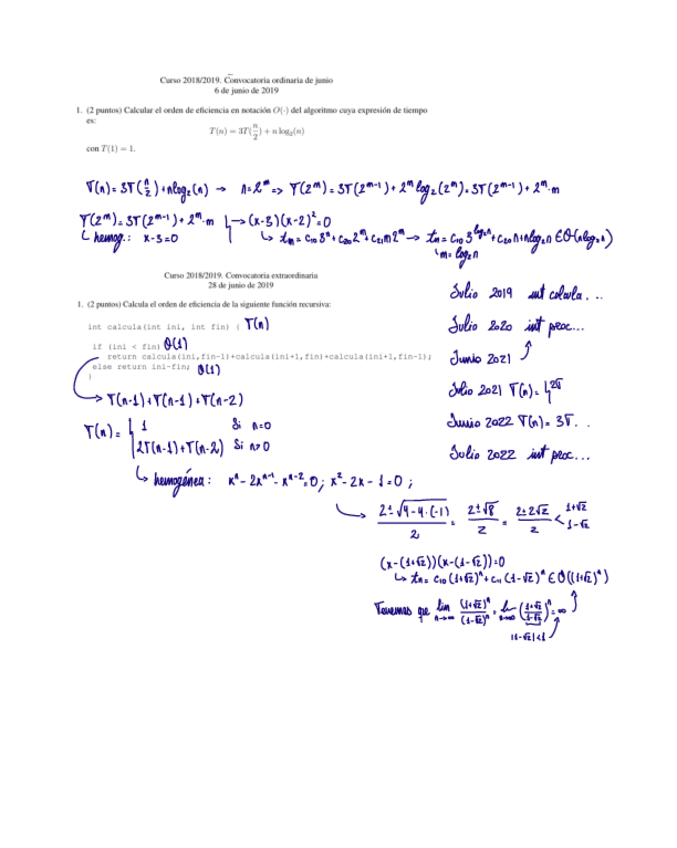 Curso 2018/2019. Convocatoria ordinaria de junio
6 de junio de 2019
1. (2 puntos) Calcular el orden de eficiencia en notación O(·) del algoritmo cuya expresión de tiempo
es:
T(n) = 3T(n/2) + n log₂(n)
con T(1) = 1.
T(n) = 3T(n/2) + n log₂(n) → n=2^m => T(2^m) = 3T(2^(m-1)) + 2^m log₂(2^m) = 3T(2^(m-1)) + 2^m · m
T(2^m) = 3T(2^(m-1)) + 2^m · m → (x-3)(x-2)² = 0
homog.: x-3=0
tm = c10 3^m + c20 2^m + c21 m 2^m → tn = c10 3^(log₂n) + c20 n + n log₂n ∈ O(n log₂n)
m = log₂n
Curso 2018/2019. Convocatoria extraordinaria
28 de junio de 2019
1. (2 puntos) Calcula el orden de eficiencia de la siguiente función recursiva:
int calcula(int ini, int fin) { T(n)
if (ini < fin) O(1)
return calcula(ini,fin-1)+calcula(ini+1,fin)+calcula(ini+1,fin-1);
else return ini-fin; O(1)
}
→ T(n-1)+T(n-1)+T(n-2)
T(n) = { 1 Si n=0
2T(n-1)+T(n-2) Si n>0
Julio 2019 int calcula...
Julio 2020 int proc...
Junio 2021
Julio 2021 T(n) = 4
Junio 2022 T(n) = 3T...
Julio 2022 int proc...
homogénea: x^n - 2x^(n-1) - x^(n-2) = 0; x² - 2x - 1 = 0;
(2 ± √(4-4·(-1)))/2 = (2±√8)/2 = (2±2√2)/2 < 1+√2
1-√2
(x-(1+√2))(x-(1-√2))=0
tn = c10 (1+√2)^n + c11 (1-√2)^n ∈ O((1+√2)^n)
Tenemos que lim n→∞ (1+√2)^n/(1-√2)^n = lim n→∞ ((1+√2)/(1-√2))^n = ∞
|1-√2|<1